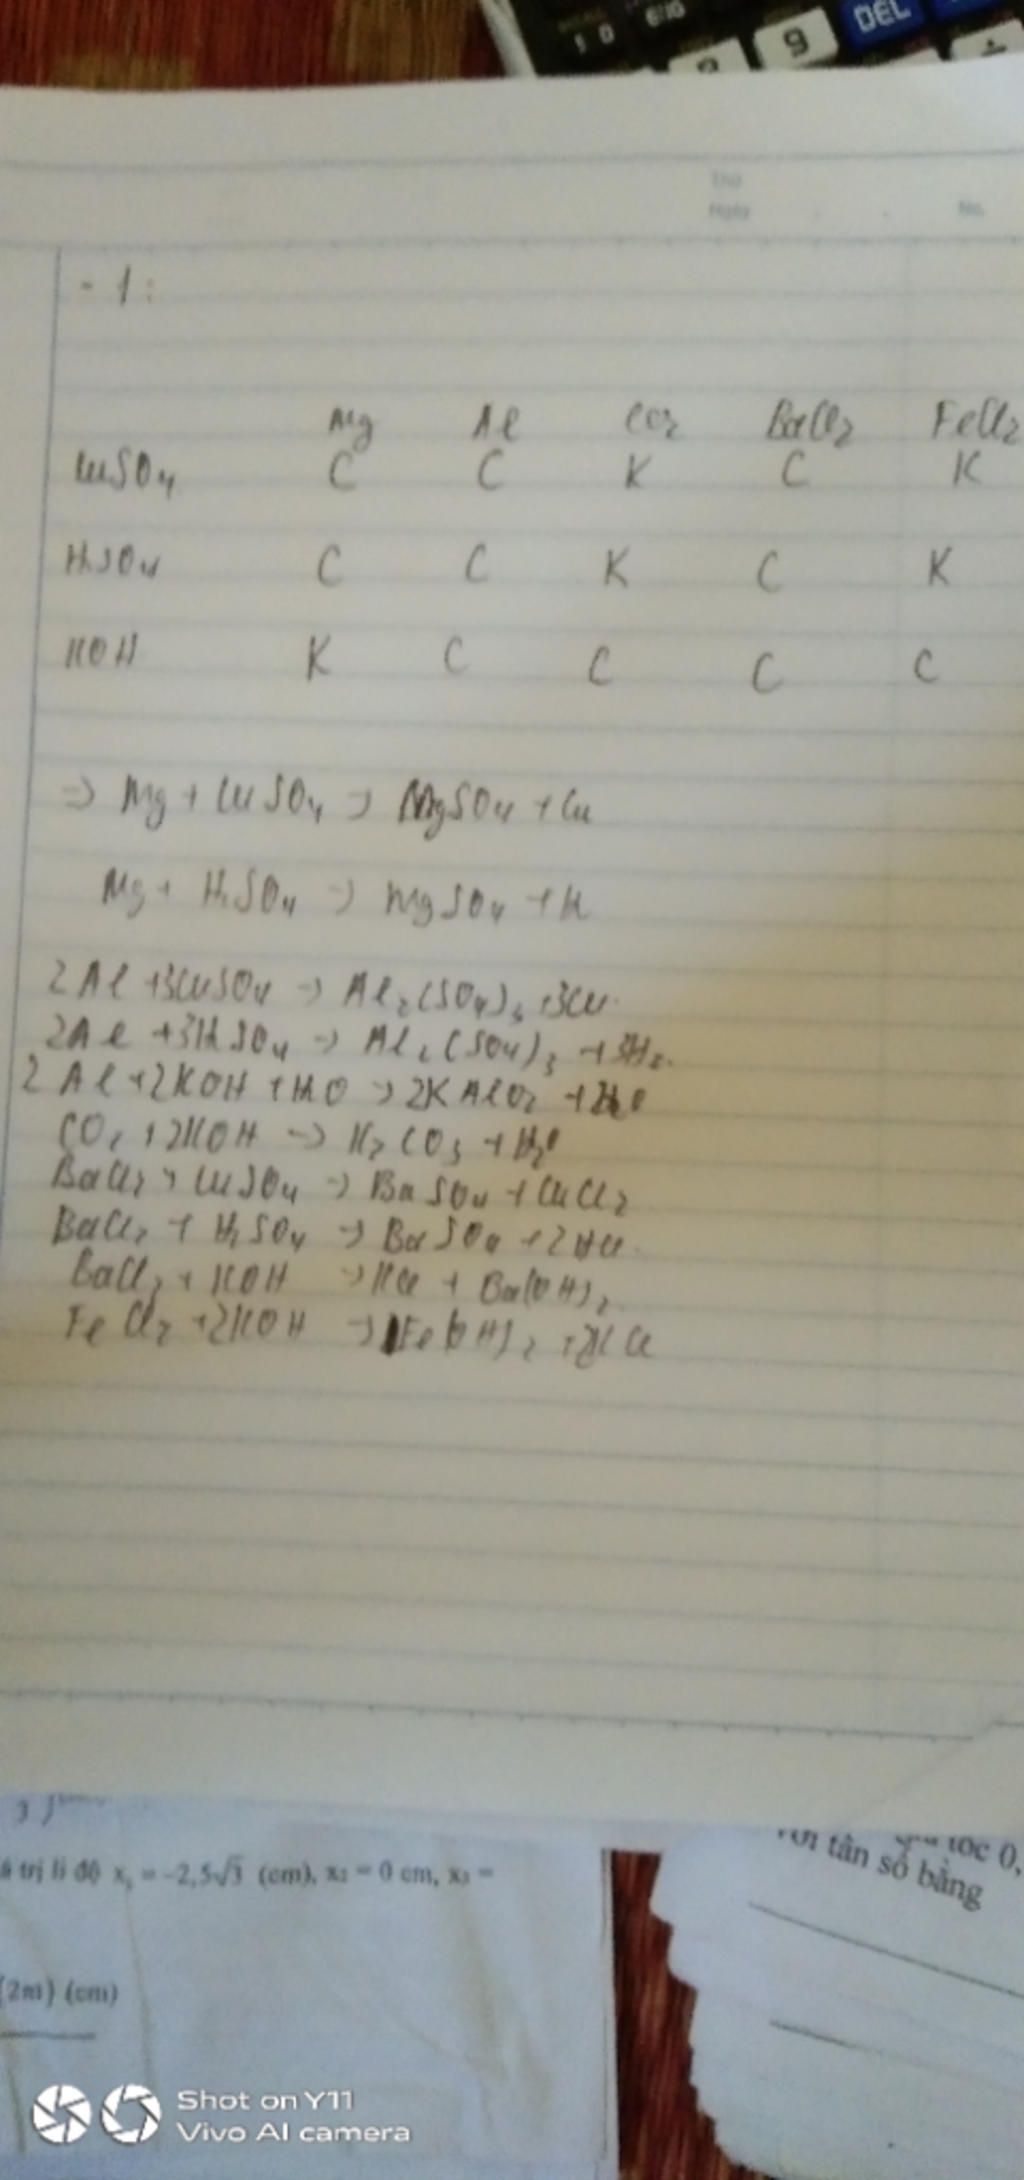 1 0
9
DEL
÷
Thứ
Ngày No.
- 1:
Mg Al CO2 BaCl2 FeCl2
CuSO4 C C K C K
H2SO4 C C K C K
KOH K C C C C
=> Mg + CuSO4 -> MgSO4 + Cu
Mg + H2SO4 -> MgSO4 + H
2Al + 3CuSO4 -> Al2(SO4)3 + 3Cu.
2Al + 3H2SO4 -> Al2(SO4)3 + 3H2.
2Al + 2KOH + H2O -> 2KAlO2 +
CO2 + 2KOH -> K2CO3 + H2O
BaCl2 + CuSO4 -> BaSO4 + CuCl2
BaCl2 + H2SO4 -> BaSO4 + 2HCl.
BaCl2 + KOH -> KCl + Ba(OH)2
FeCl2 + 2KOH -> Fe(OH)2 + 2KCl
trị li độ x1 = -2,5√3 (cm), x2 = 0 cm, x3 =
(cm)
tốc 0,
với tần số bằng
Shot on Y11
Vivo AI camera